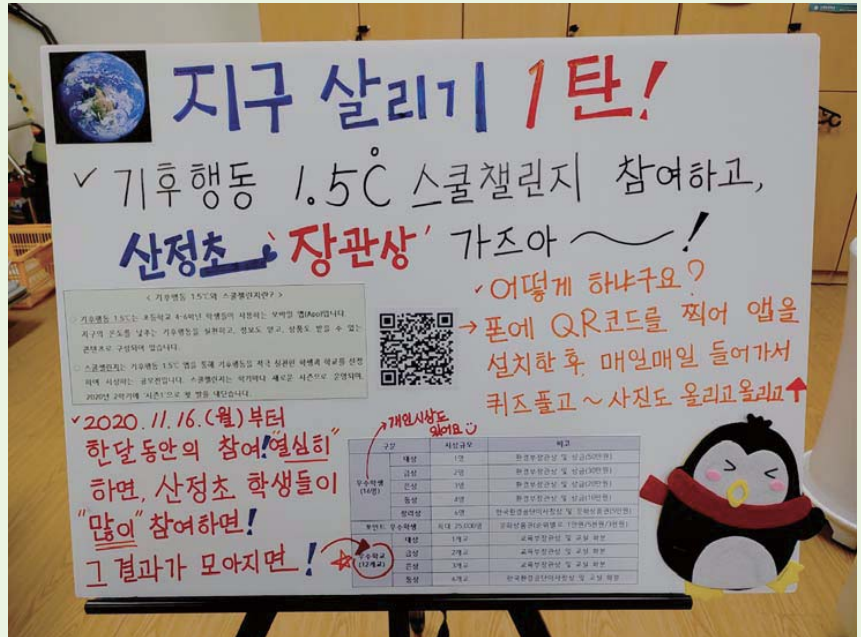 지구 살리기 1탄!
✓ 기후행동 1.5℃ 스쿨챌린지 참여하고,
산정초 '장관상' 가즈아~!
< 기후행동 1.5℃와 스쿨챌린지란? >
기후행동 1.5℃는 초등학교 4-6학년 학생들이 사용하는 모바일 앱(App)입니다.
지구의 온도를 낮추는 기후행동을 실천하고, 정보도 얻고, 상품도 받을 수 있는
콘텐츠로 구성되어 있습니다.
스쿨챌린지는 기후행동 1.5℃ 앱을 통해 기후행동을 적극 실천한 학생과 학교를 선정
하여 시상하는 공모전입니다. 스쿨챌린지는 학기마다 새로운 시즌으로 운영되며,
2020년 2학기에 시즌1으로 첫 발을 내딛습니다.
✓ 어떻게 하냐구요?
→ 폰에 QR코드를 찍어 앱을
설치한 후, 매일매일 들어가서
퀴즈풀고~사진도 올리고올리고↑
✓ 2020. 11. 16. (월)부터
한달 동안의 참여! "열심히"
하면, 산정초 학생들이
"많이" 참여하면!
그 결과가 모아지면!
개인시상도
있어요
구분 시상규모 비고
우수학생
(16명)
대상 1명 환경부장관상 및 상금(50만원)
금상 2명 환경부장관상 및 상금(30만원)
은상 3명 환경부장관상 및 상금(20만원)
동상 4명 환경부장관상 및 상금(10만원)
장려상 6명 한국환경공단이사장상 및 문화상품권(5만원)
포인트 우수학생 최대 25,000명 문화상품권(순위별로 1만원/5천원/3천원)
우수학교
(12개교)
대상 1개교 교육부장관상 및 교실 화분
금상 2개교 교육부장관상 및 교실 화분
은상 3개교 교육부장관상 및 교실 화분
동상 6개교 한국환경공단이사장상 및 교실 화분